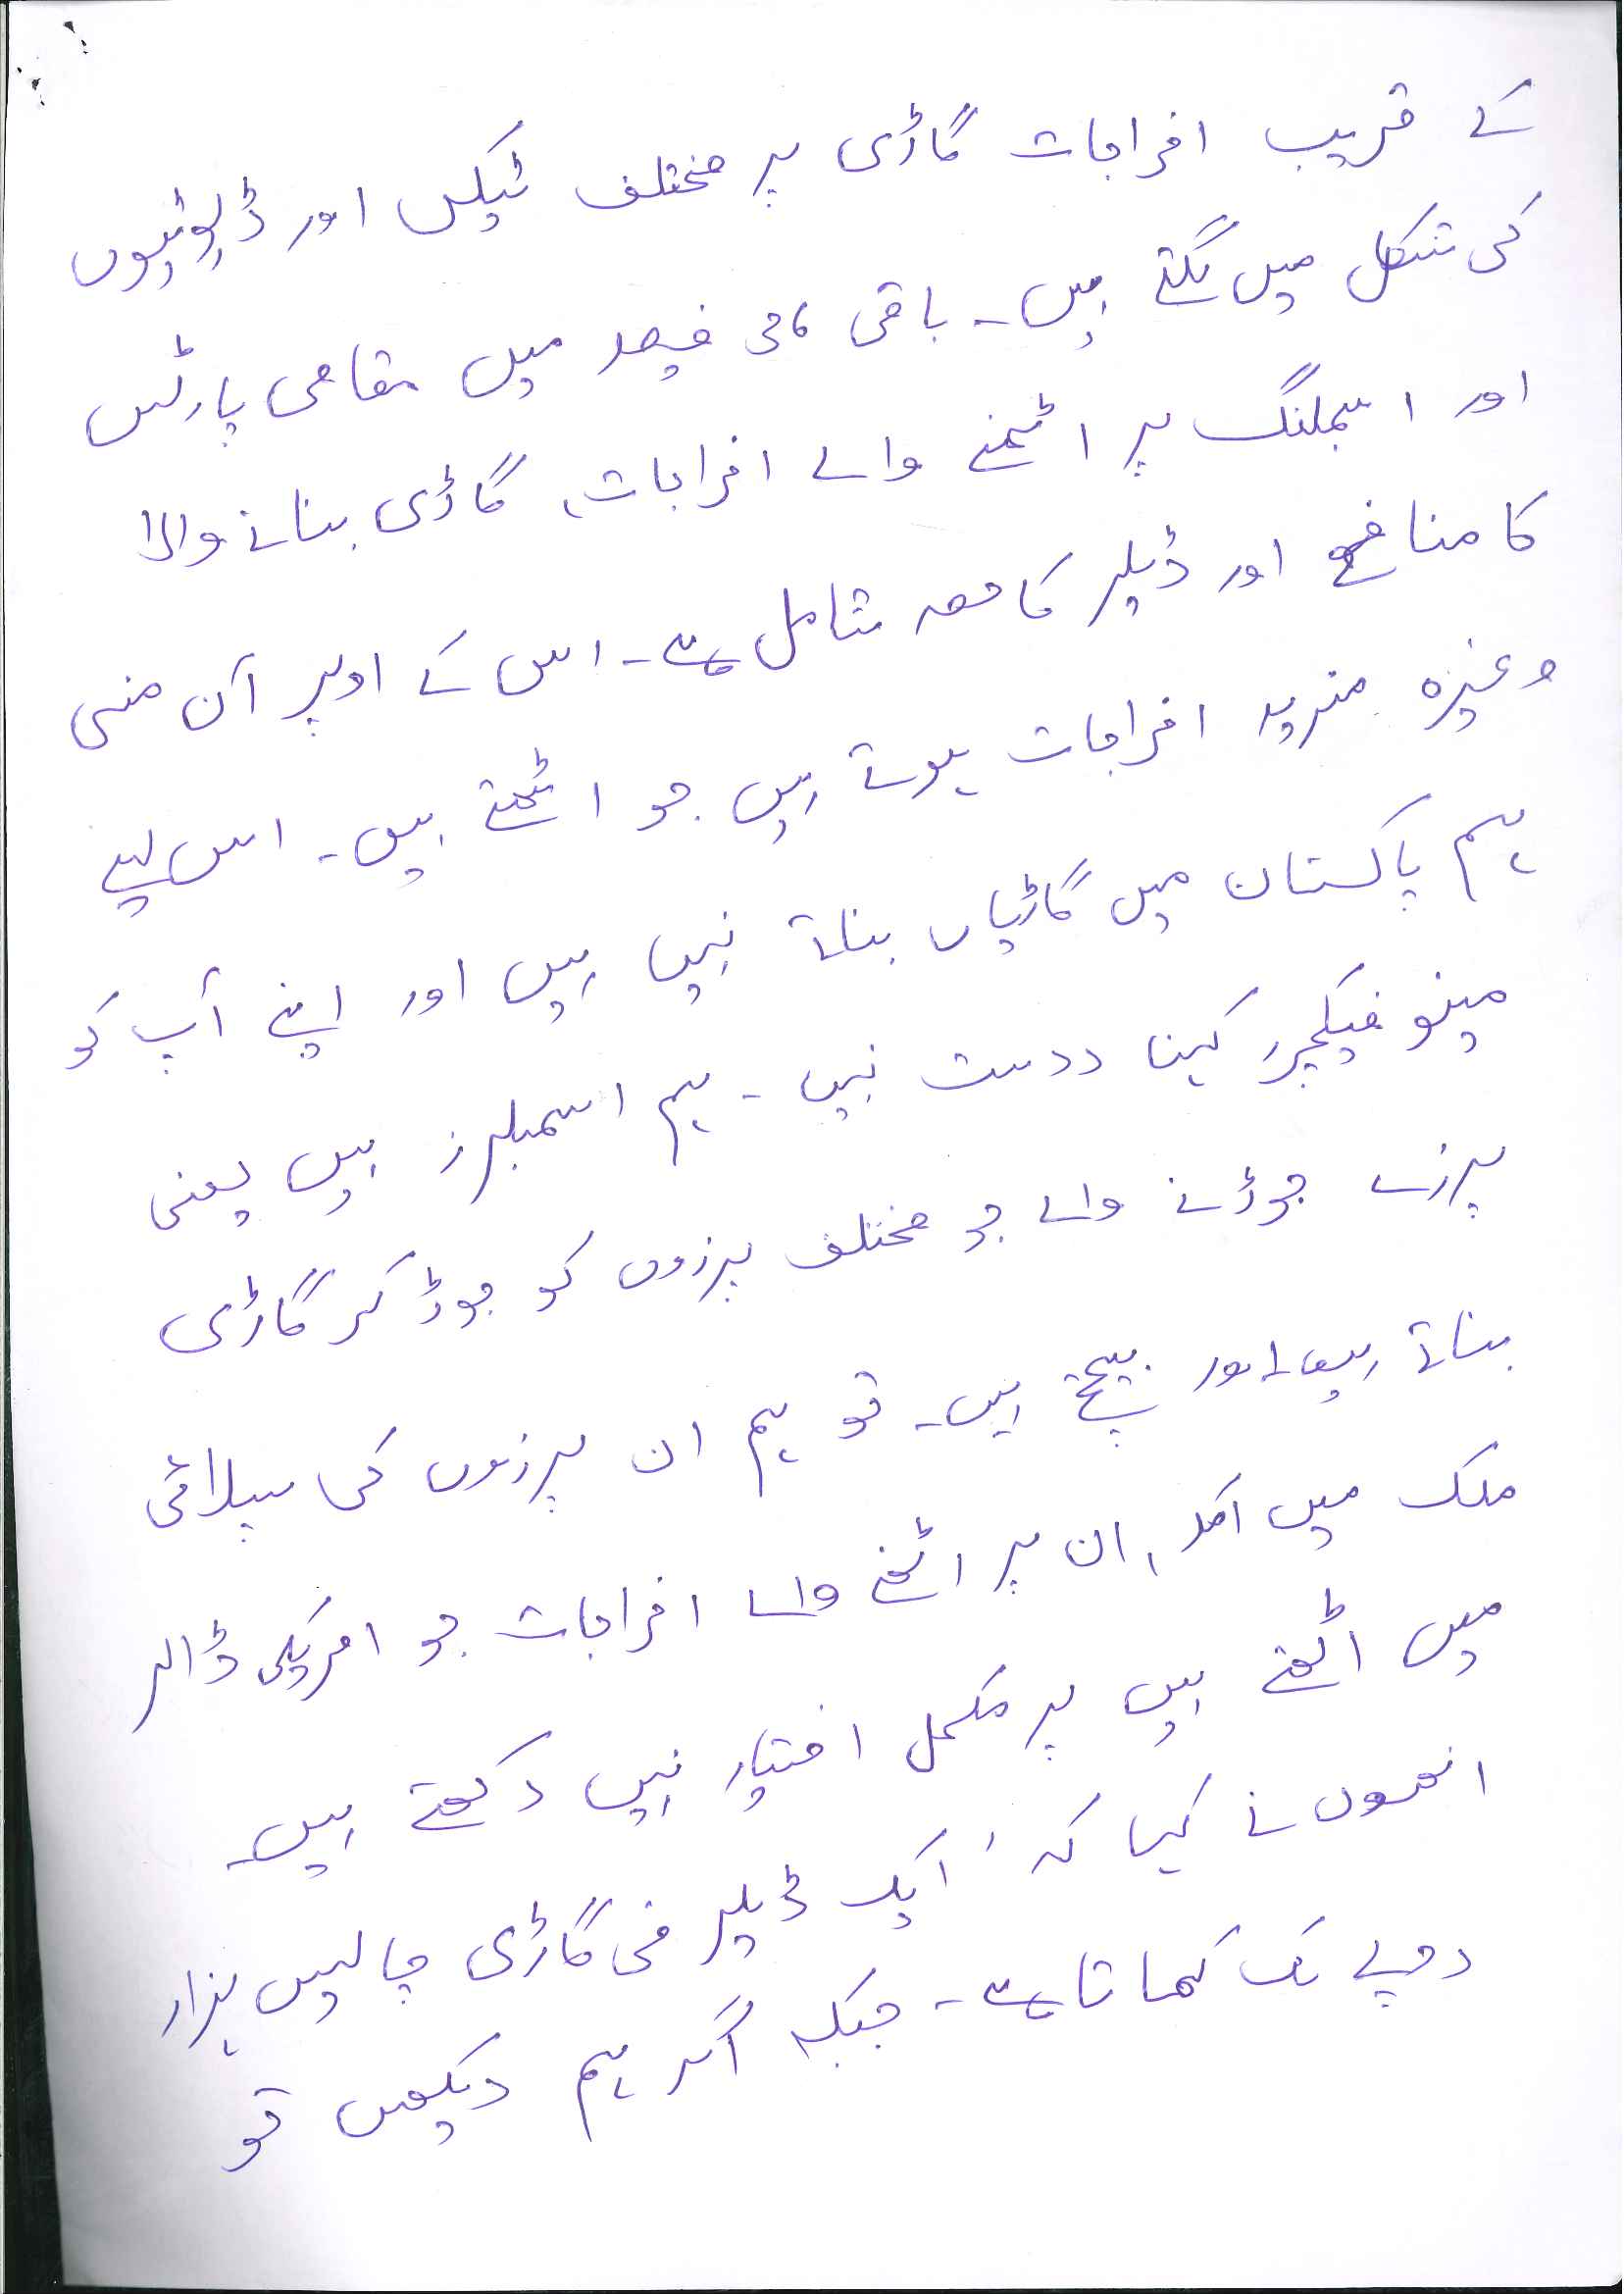 کے قریب اخراجات گاڑی پر مختلف ٹیکس اور ڈیوٹیوں
کی شکل میں لگتے ہیں۔ باقی فیصد میں مقامی پارٹس
اور اسمبلنگ پر اٹھنے والے اخراجات، گاڑی بنانے والا
کا منافع اور ڈیلر کا حصہ شامل ہے۔ اس کے اوپر آن منی
وغیرہ مزید اخراجات ہوتے ہیں جو اٹھتے ہیں۔ اس لیے
ہم پاکستان میں گاڑیاں بناتے نہیں ہیں اور اپنے آپ کو
مینوفیکچرر کہنا درست نہیں۔ ہم اسمبلرز ہیں یعنی
پرزے جوڑنے والے جو مختلف پرزوں کو جوڑ کر گاڑی
بناتے ہیں اور بیچتے ہیں۔ تو ہم ان پرزوں کی سپلائی
ملک میں آمد، ان پر اٹھنے والے اخراجات جو امریکی ڈالر
میں اٹھتے ہیں پر مکمل اختیار نہیں رکھتے ہیں۔
انھوں نے کہا کہ 'ایک ڈیلر فی گاڑی چالیس ہزار
روپے تک کماتا ہے۔ جبکہ اگر ہم دیکھیں تو